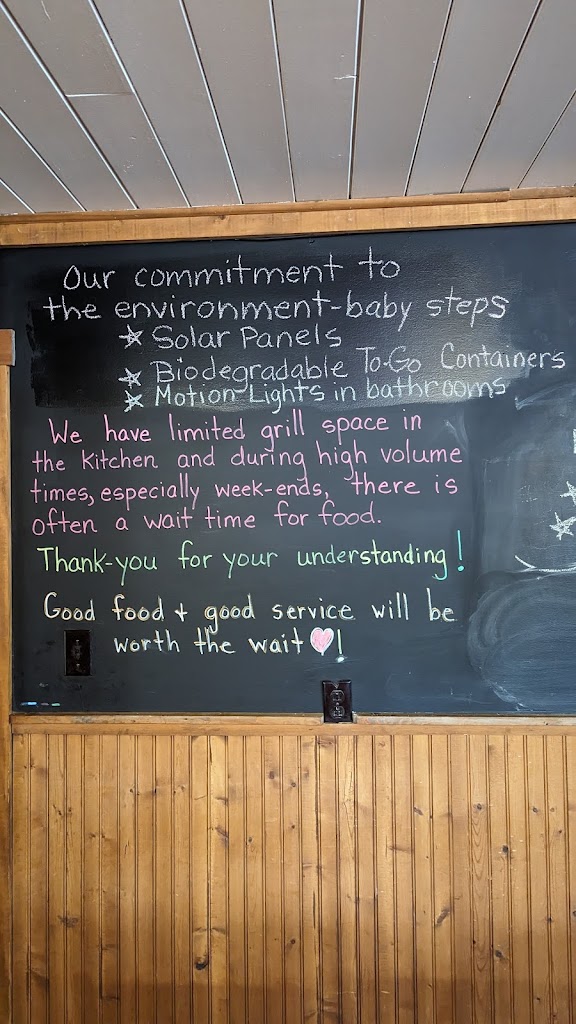 Our commitment to
the environment-baby steps
☆ Solar Panels
☆ Biodegradable To-Go Containers
☆ Motion-Lights in bathrooms
We have limited grill space in
the kitchen and during high volume
times, especially week-ends, there is
often a wait time for food.
Thank-you for your understanding!
Good food + good service will be
worth the wait ♡!